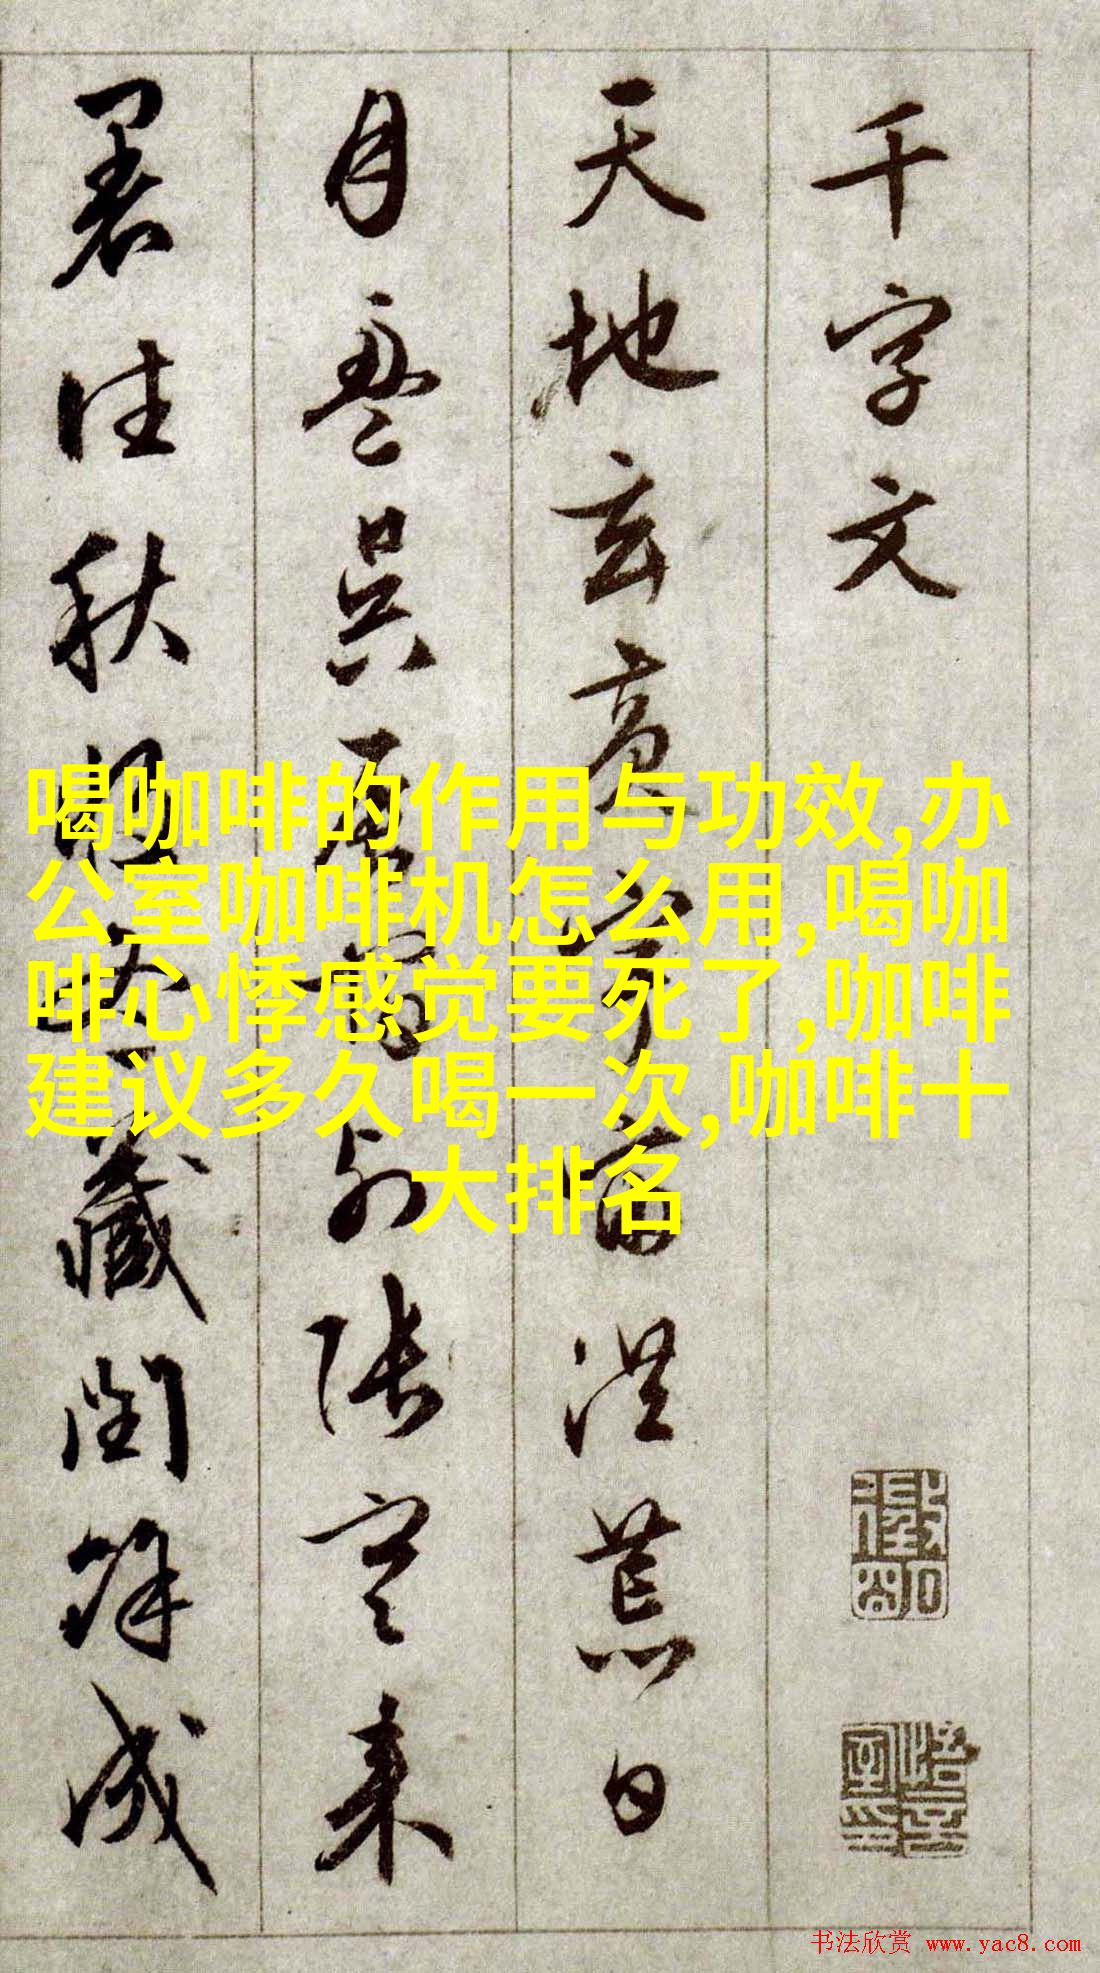 千字文
天地玄黄宇宙洪荒日
月盈昃辰宿列张寒来
暑往秋收冬藏閏餘成
喝咖啡的作用与功效,办
公室咖啡机怎么用,喝咖
啡心悸感觉要死了,咖啡
建议多久喝一次,咖啡十
大排名
书法欣赏 www.yac8.com